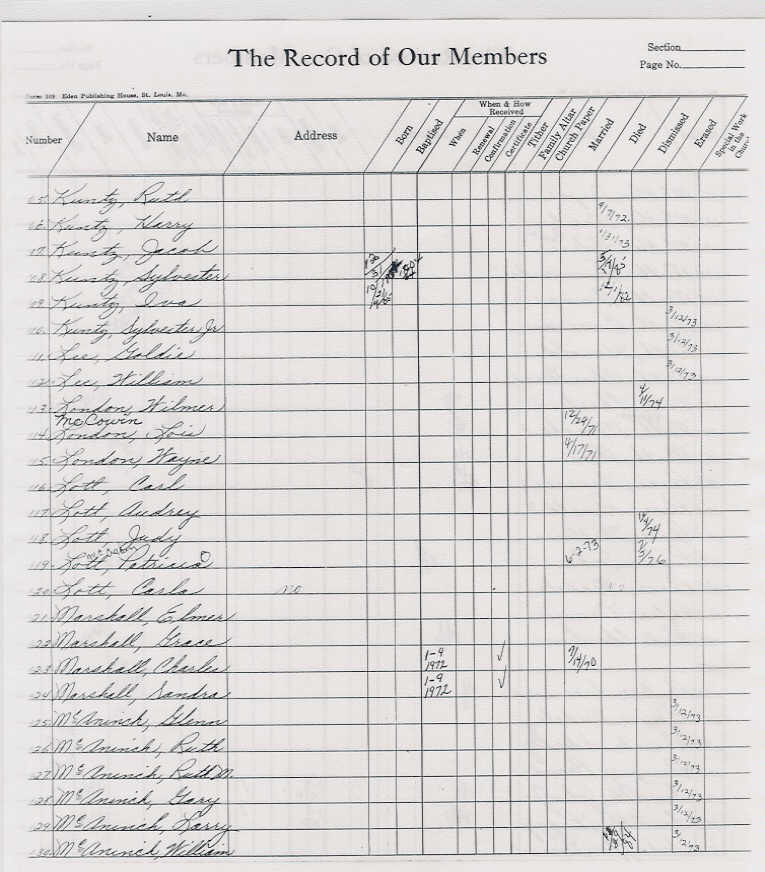 The Record of Our Members
Section
Page No.
Form 109 Eden Publishing House, St. Louis, Mo.
Number Name Address Born Baptised When & How Received When Renewal Confirmation Certificate Tither Family Altar Church Paper Married Died Dismissed Erased Special Work in the Church
05 Kuntz, Ruth
06 Kuntz, Harry 9/7/72
07 Kuntz, Jacob 1/31/73
08 Kuntz, Sylvester
09 Kuntz, Iva
10 Kuntz, Sylvester Jr 3/12/73
11 Lee, Goldie 3/12/73
112 Lee, William 3/12/73
113 London, Wilmer 4/11/74
McCowin 12/29/71
114 London, Lois
115 London, Wayne 4/17/71
116 Lott, Carl
117 Lott, Audrey
118 Lott, Judy
119 Lott, Patricia 6-2-73
120 Lott, Carla no
121 Marshall, Elmer
122 Marshall, Grace
123 Marshall, Charles 1-9 1972 ✓ 7/14/70
124 Marshall, Sandra 1-9 1972 ✓
125 McAninch, Glenn 3/12/73
126 McAninch, Ruth 3/12/73
127 McAninch, Ruth M. 3/12/73
128 McAninch, Gary 3/12/73
129 McAninch, Larry 3/12/73
130 McAninch, William 3/12/73